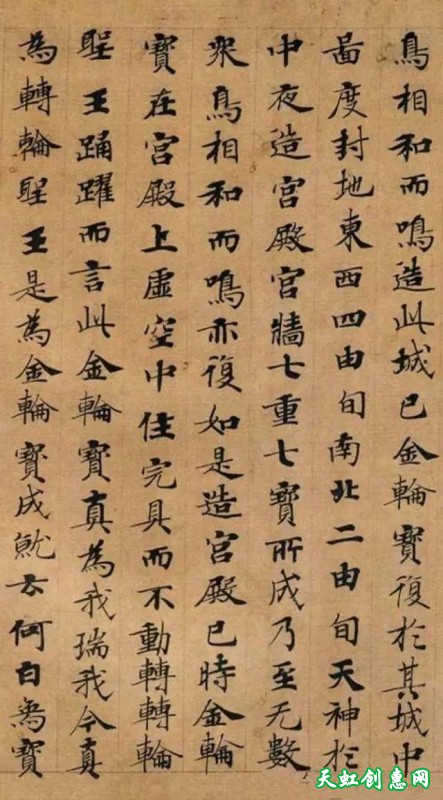 鳥相和而鳴造此城已金輪寶復於其城中
啚度封地東西四由旬南北二由旬天神於
中夜造宮殿宮牆七重七寶所成乃至无數
眾鳥相和而鳴亦復如是造宮殿已時金輪
寶在宮殿上虛空中住完具而不動轉轉輪
聖王踊躍而言此金輪寶真為我瑞我今真
為轉輪聖王是為金輪寶成就云何白爲寶
天虹创惠网